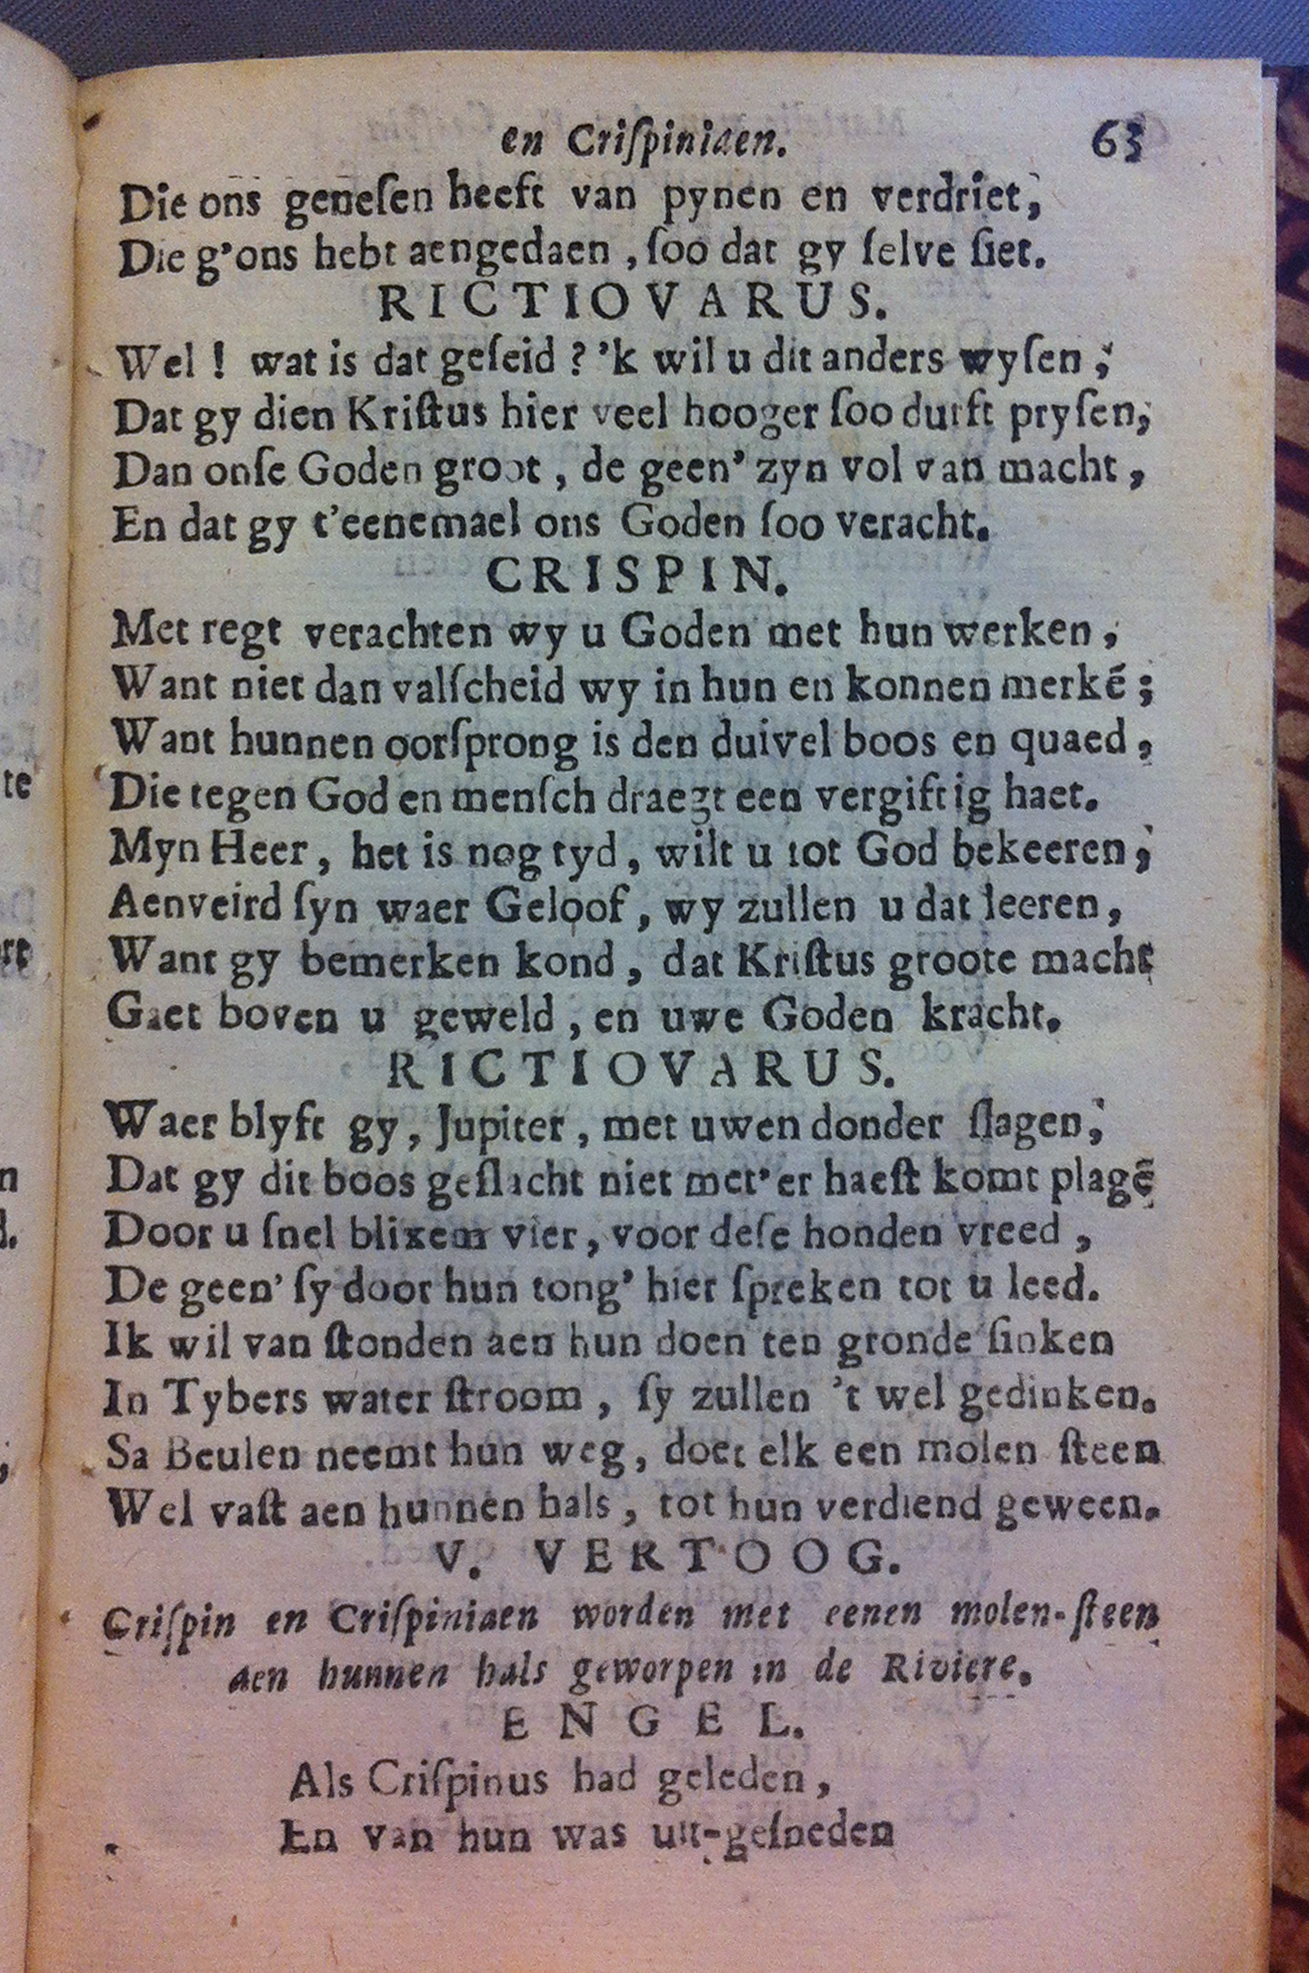 en Criſpiniaen. 63
Die ons geneſen heeft van pynen en verdriet,
Die g'ons hebt aengedaen, ſoo dat gy ſelve ſiet.
RICTIOVARUS.
Wel! wat is dat geſeid? 'k wil u dit anders wyſen,
Dat gy dien Kriſtus hier veel hooger ſoo durft pryſen,
Dan onſe Goden groot, de geen' zyn vol van macht,
En dat gy t'eenemael ons Goden ſoo veracht.
CRISPIN.
Met regt verachten wy u Goden met hun werken,
Want niet dan valſcheid wy in hun en konnen merkē;
Want hunnen oorſprong is den duivel boos en quaed,
Die tegen God en menſch draegt een vergiftig haet.
Myn Heer, het is nog tyd, wilt u tot God bekeeren,
Aenveird ſyn waer Geloof, wy zullen u dat leeren,
Want gy bemerken kond, dat Kriſtus groote macht
Gaet boven u geweld, en uwe Goden kracht.
RICTIOVARUS.
Waer blyft gy, Jupiter, met uwen donder ſlagen,
Dat gy dit boos geſlacht niet met'er haeſt komt plagē
Door u ſnel blixem vier, voor deſe honden vreed,
De geen' ſy door hun tong' hier ſpreken tot u leed.
Ik wil van ſtonden aen hun doen ten gronde ſinken
In Tybers water ſtroom, ſy zullen 't wel gedinken.
Sa Beulen neemt hun weg, doet elk een molen ſteen
Wel vaſt aen hunnen hals, tot hun verdiend geween.
V. VERTOOG.
Criſpin en Criſpiniaen worden met eenen molen-ſteen
aen hunnen hals geworpen in de Riviere.
ENGEL.
Als Criſpinus had geleden,
En van hun was uit-geſneden